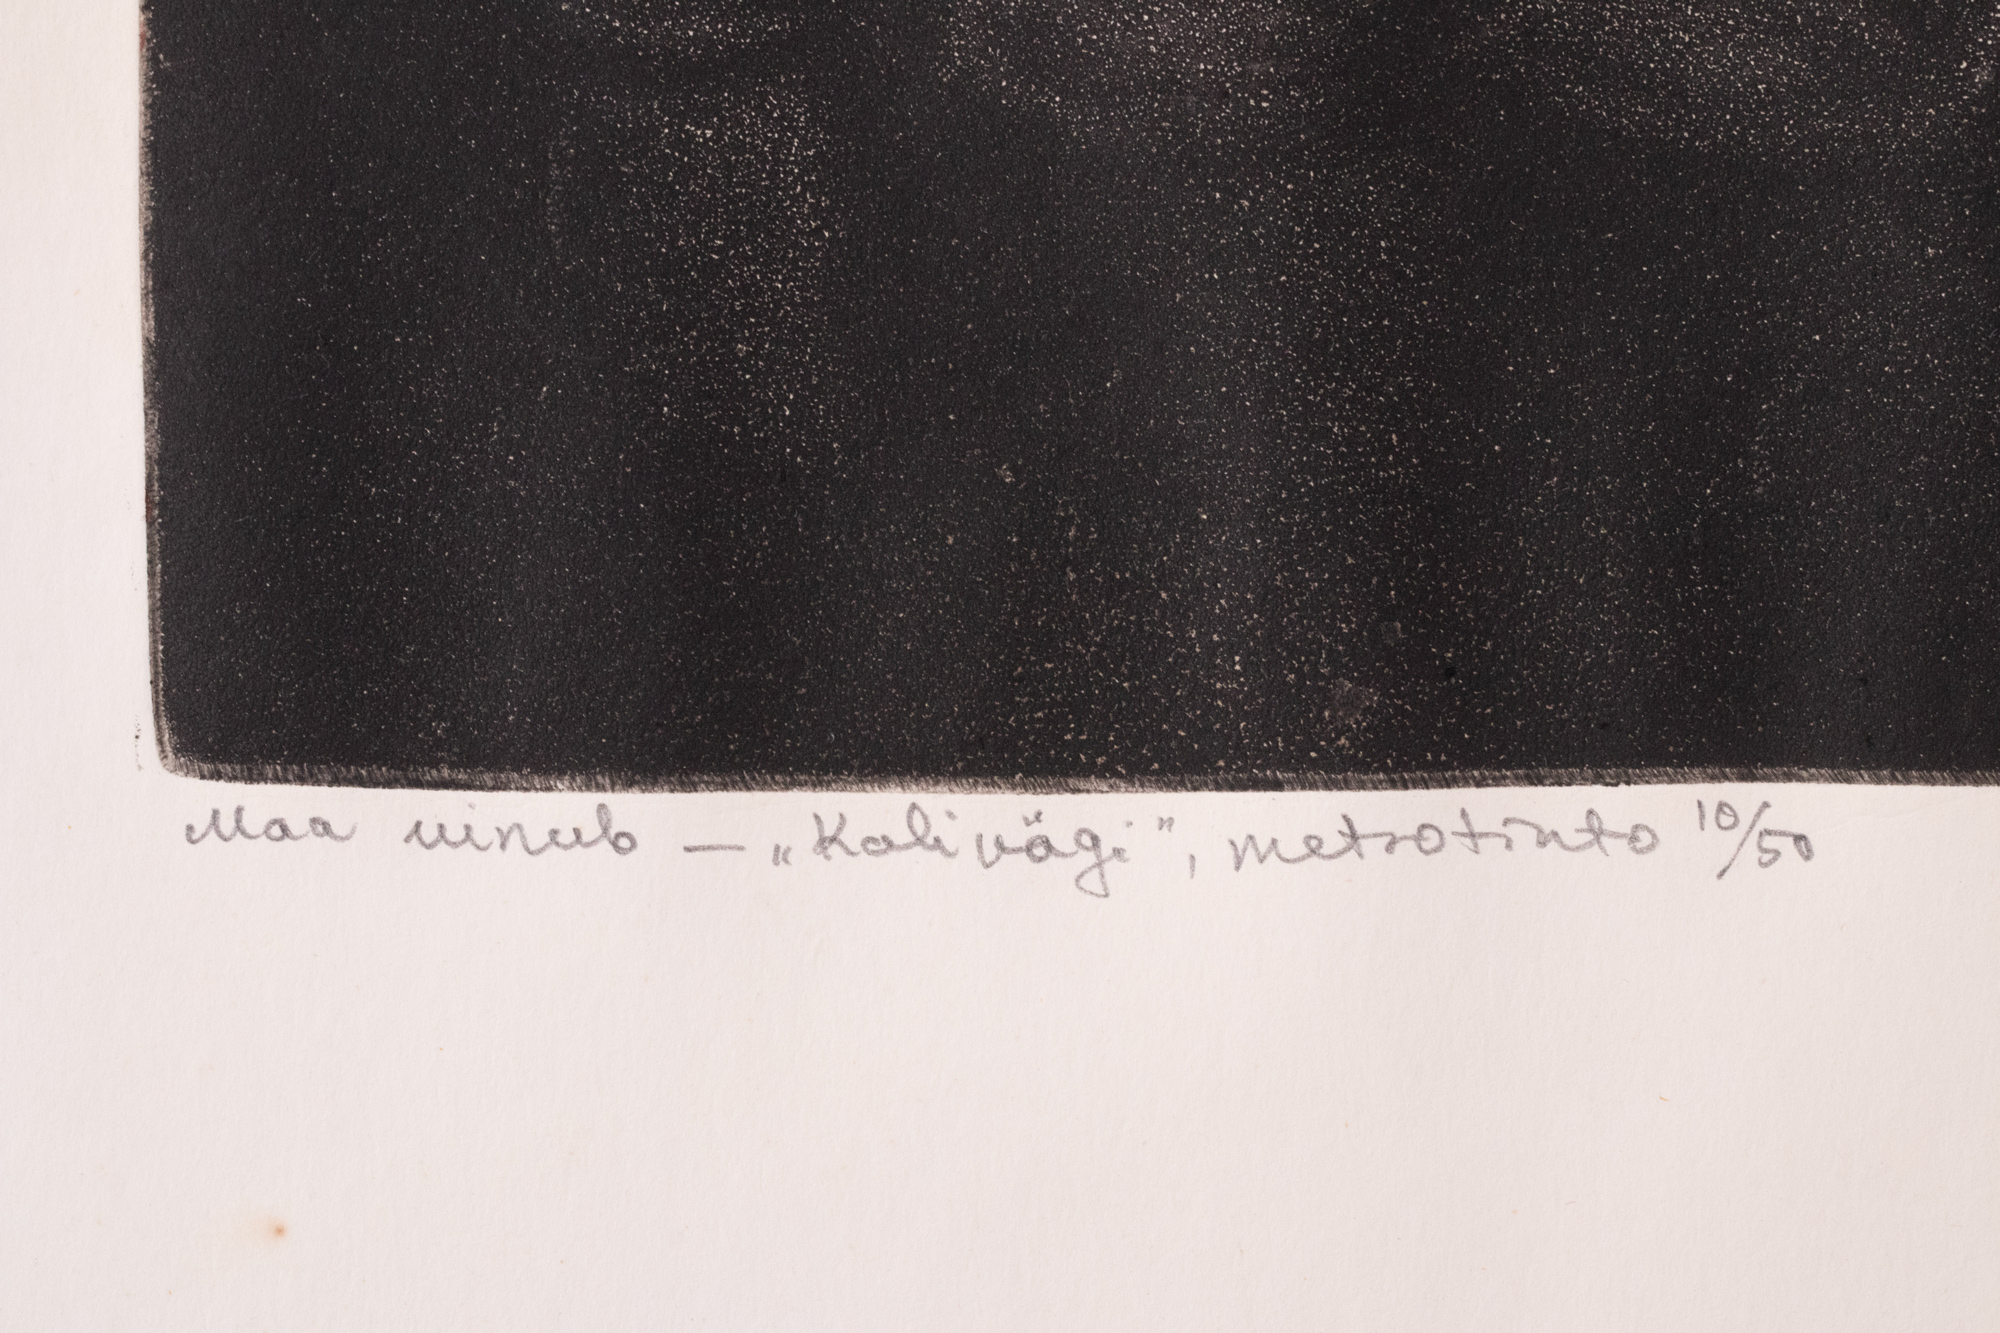 Maa uinub – „Kalivägi”, metsotinto 10/50